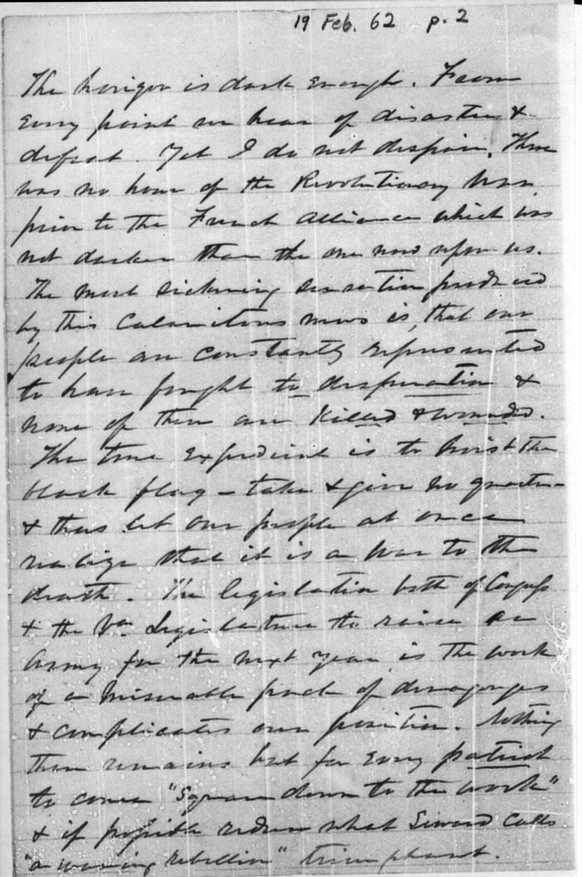 19 Feb. 62 p. 2
The horizon is dark enough. From
every point we hear of disaster &
defeat. Yet I do not despair. There
was no hour of the Revolutionary War
prior to the French Alliance which was
not darker than the one now upon us.
The most sickening sensation produced
by this calamitous news is, that our
people are constantly represented
to have fought to desperation &
none of them are killed & wounded.
The true expedient is to hoist the
black flag – take & give no quarter –
& thus let our people at once
realize that it is a war to the
death. The legislation both of Congress
& the Va Legislature to raise an
Army for the next year is the work
of a miserable pack of demagogues
& complicates our position. Nothing
then remains but for every patriot
to come "Square down to the work"
& if possible redeem what Seward calls
"a waning rebellion" triumphant.